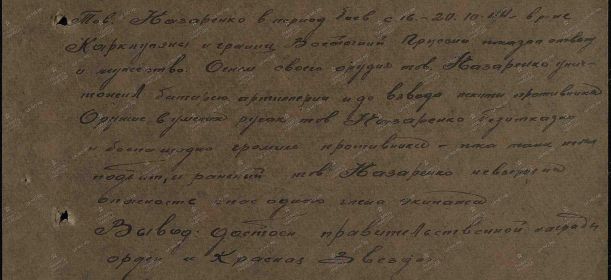 Тов. Назаренко в период боев с 16.-20.10.44г. в р-не
и границ Восточной Пруссии показал отвагу
и мужество. Огнем своего орудия тов. Назаренко унич-
тожил батарею артиллерии и до взвода пехоты противника
Орудие в умелых руках тов Назаренко безотказно
и беспощадно громило противника - пока танк
подбит, и раненый тов Назаренко невзирая на
опасность спас одного члена экипажа
Вывод: достоин правительственной награды
орден "Красная Звезда".